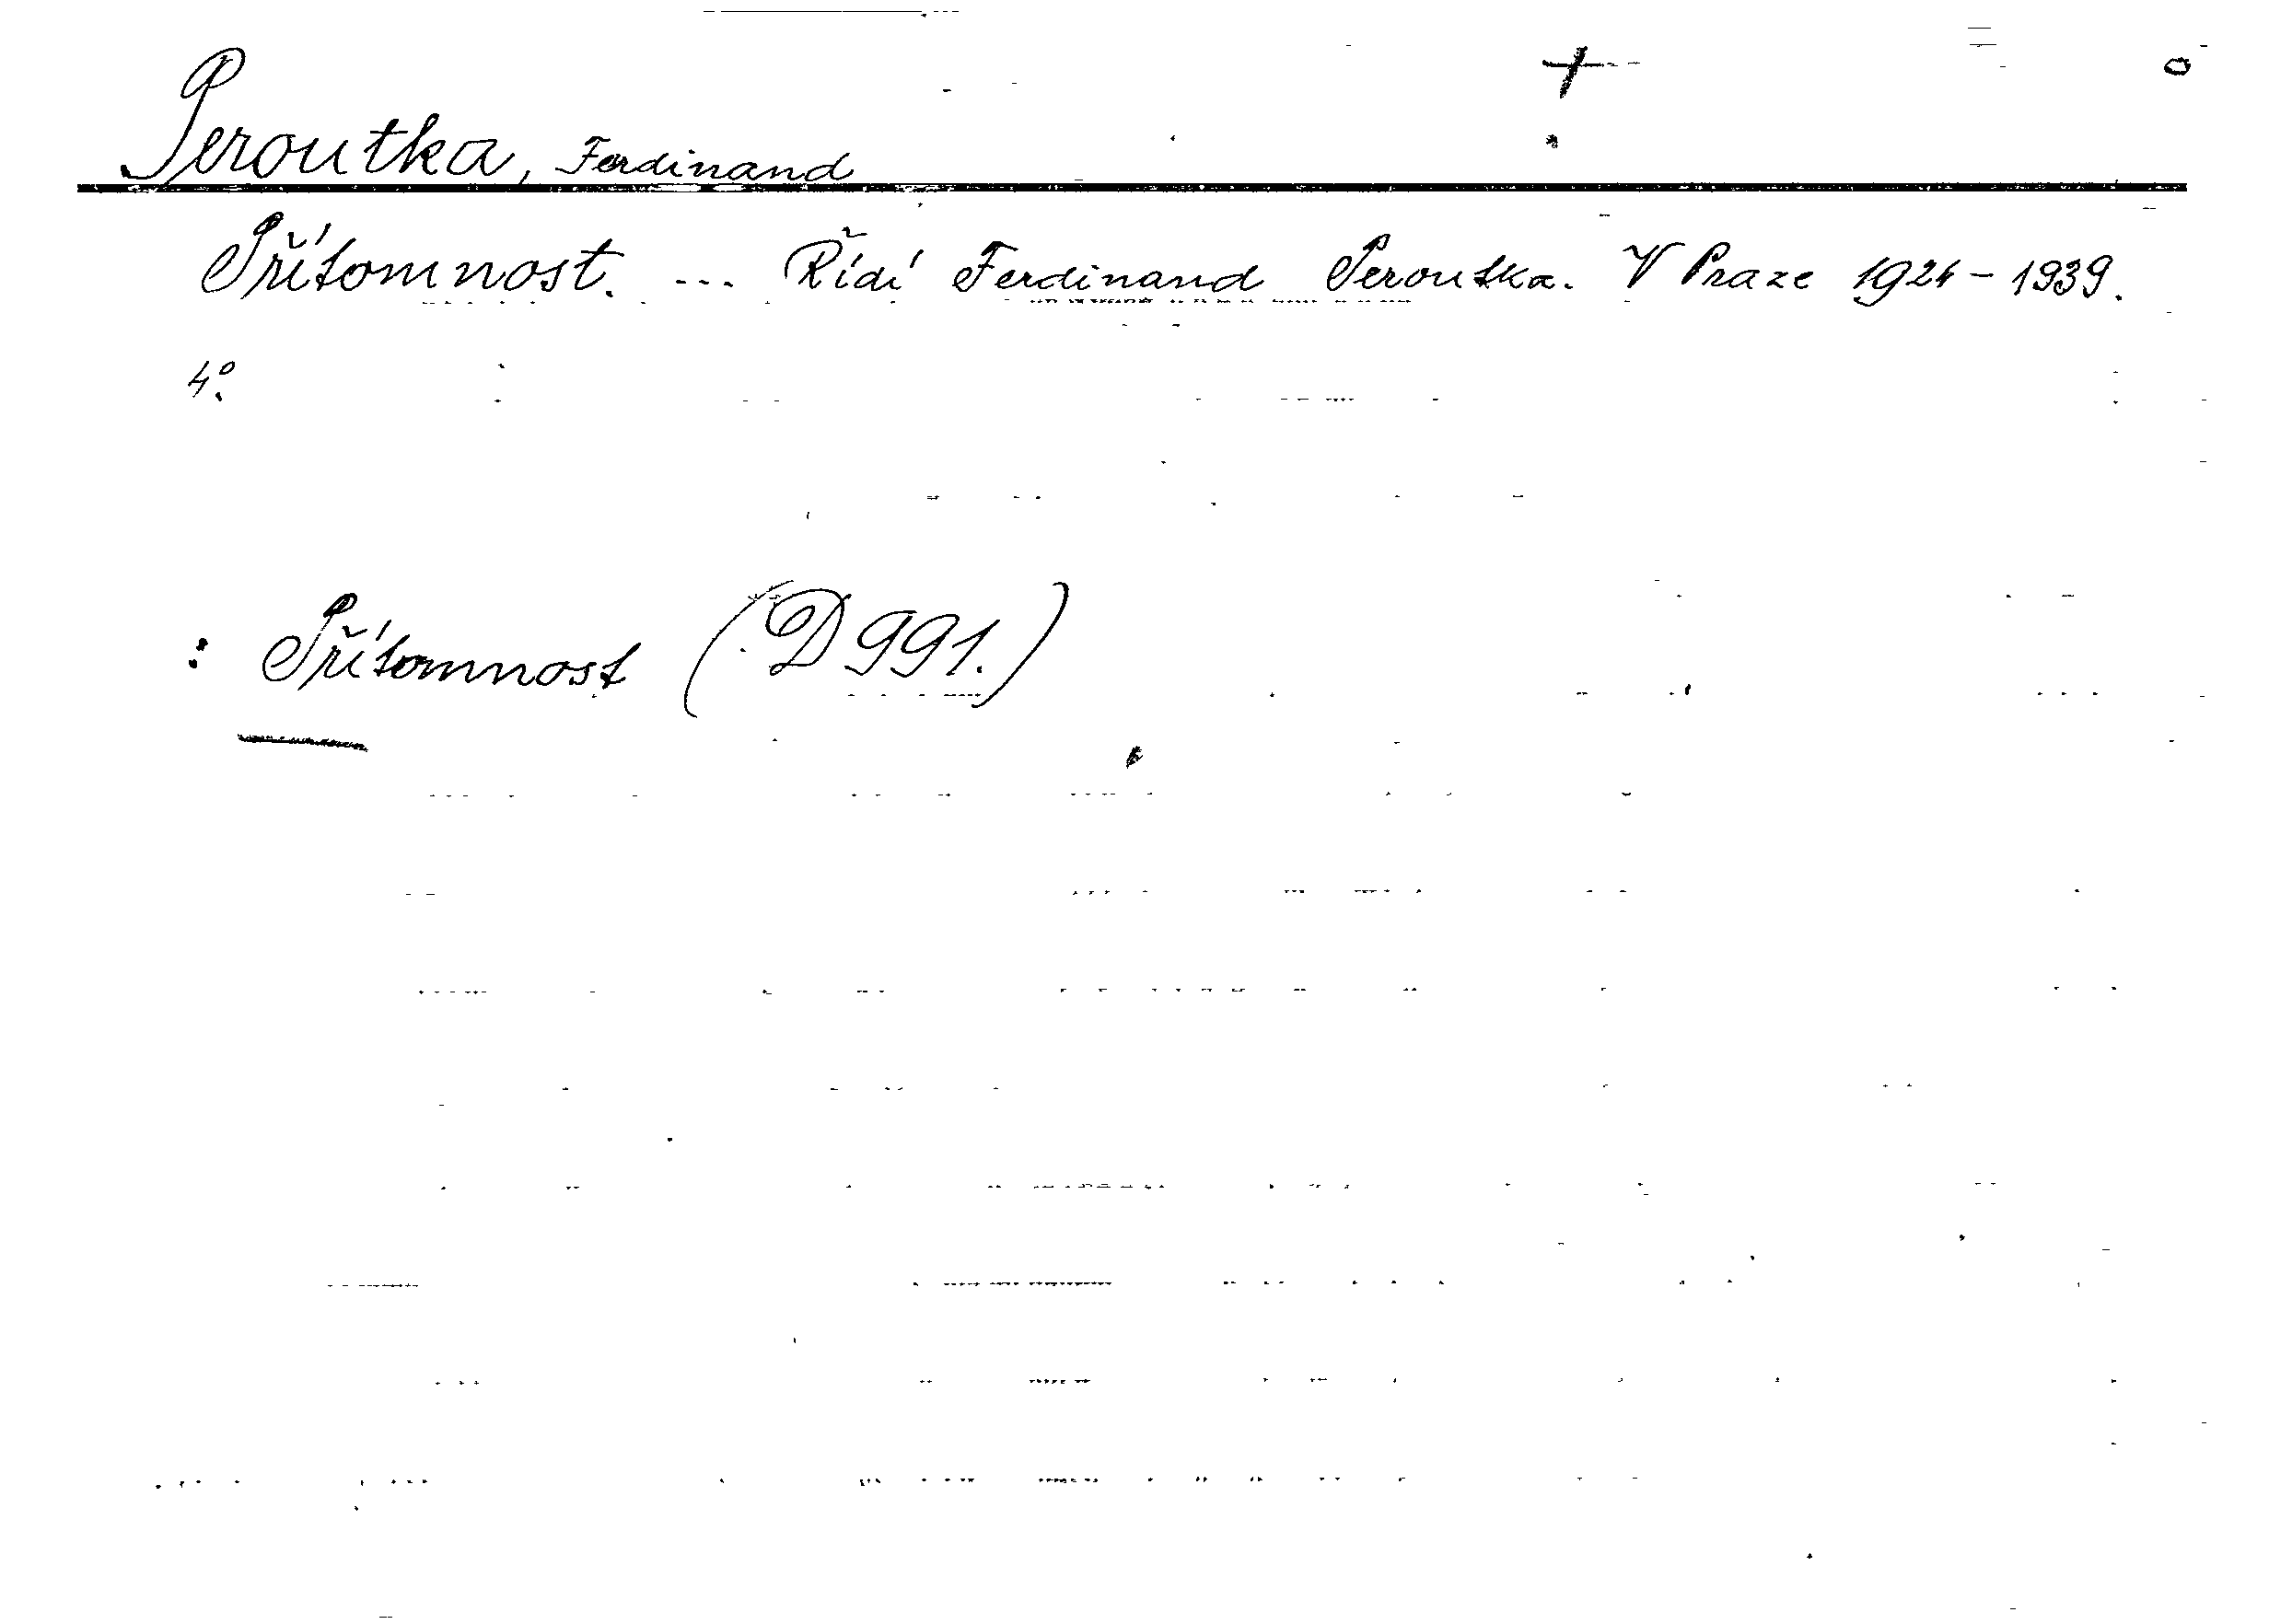 Peroutka, Ferdinand
Přítomnost. ... Řídí Ferdinand Peroutka. V Praze 1924-1939.
4°.
: Přítomnost (D 991.)